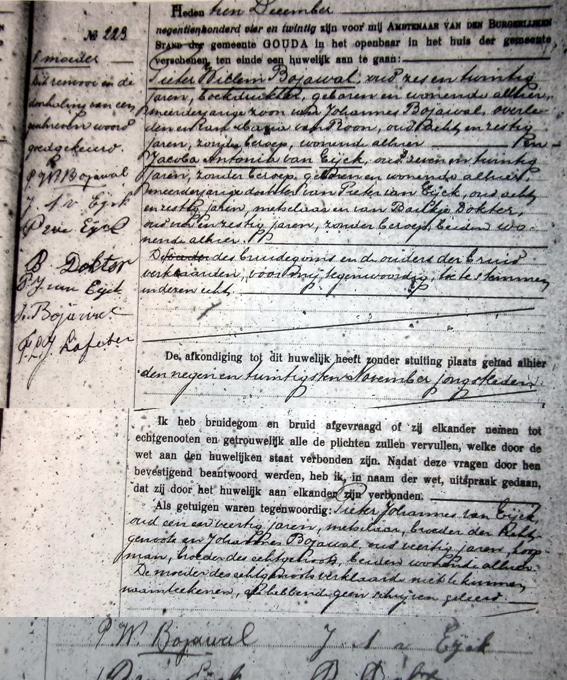 Heden tien December
№ 223
negentienhonderd vier en twintig zijn voor mij AMBTENAAR VAN DEN BURGERLIJKEN
STAND der gemeente GOUDA in het openbaar in het huis der gemeente
verschenen, ten einde een huwelijk aan te gaan:
Pieter Willem Bojawal, oud zes en twintig
jaren, boekdrukker, geboren en wonende alhier,
meerderjarige zoon van Johannes Bojawal, overle-
den en van Maria van Roon, oud acht en zestig
jaren, zonder beroep, wonende alhier En
Jacoba Antonia van Eijck, oud zeven en twintig
jaren, zonder beroep, geboren en wonende alhier,
meerderjarige dochter van Pieter van Eijck, oud acht
en zestig jaren, metselaar en van Dokter,
oud en zestig jaren, zonder beroep, beiden wo-
nende alhier.
De des bruidegoms en de ouders der bruid
verklaarden, voor mij tegenwoordig, toe te stemmen
in deze echt.
moeder
De en de
doorhaling van een
woord
goedgekeurd.
P W Bojawal
J A v Eyck
P van Eyck
B Dokter
P J van Eyck
J. Bojawal
Lafeber
De afkondiging tot dit huwelijk heeft zonder stuiting plaats gehad alhier
den negen en twintigsten November jongstleden.
Ik heb bruidegom en bruid afgevraagd of zij elkander nemen tot
echtgenooten en getrouwelijk alle de plichten zullen vervullen, welke door de
wet aan den huwelijken staat verbonden zijn. Nadat deze vragen door hen
bevestigend beantwoord werden, heb ik, in naam der wet, uitspraak gedaan,
dat zij door het huwelijk aan elkander zijn verbonden.
Als getuigen waren tegenwoordig: Pieter Johannes van Eijck,
oud een en veertig jaren, metselaar, broeder der Echt-
genoote en Johannes Bojawal, oud veertig jaren, koop-
man, broeder des echtgenoots, beiden wonende alhier.
De moeder des echtgenoots verklaarde niet te kunnen
naamteekenen, als hebbende geen schrijven geleerd.
P. W. Bojawal J A v Eyck